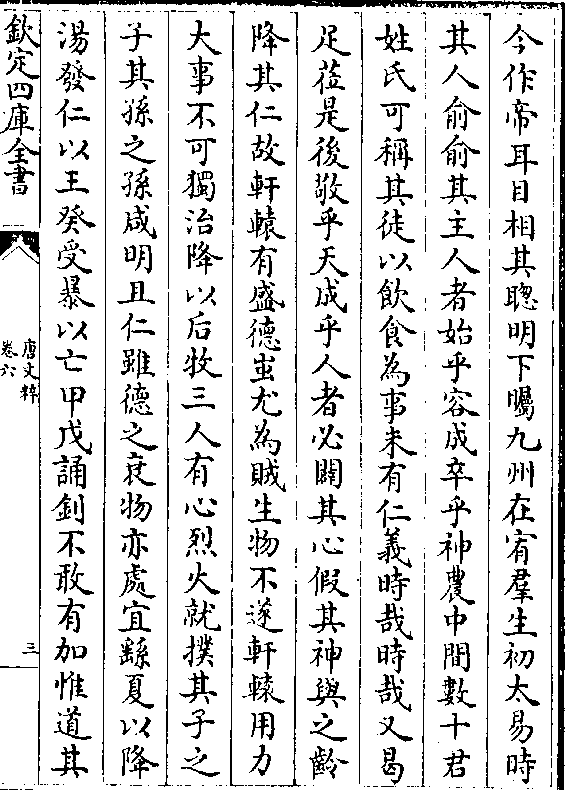 今作帝耳目相其聰明下矚九州在宥羣生初太易時
其人俞俞其主人者始乎容成卒乎神農中間數十君
姓氏可稱其徒以飲食為事未有仁義時哉時哉又曷
足莅是後敬乎天成乎人者必闢其心假其神與之齡
降其仁故軒轅有盛德蚩尤為賊生物不遂軒轅用力
大事不可獨治降以后牧三人有心烈火就撲其子之
子其孫之孫咸明且仁雖德之衰物亦處宜繇夏以降
湯發仁以王癸受暴以亡甲戊誦釗不敢有加惟道其
欽定四庫全書
唐文粹
卷六
三